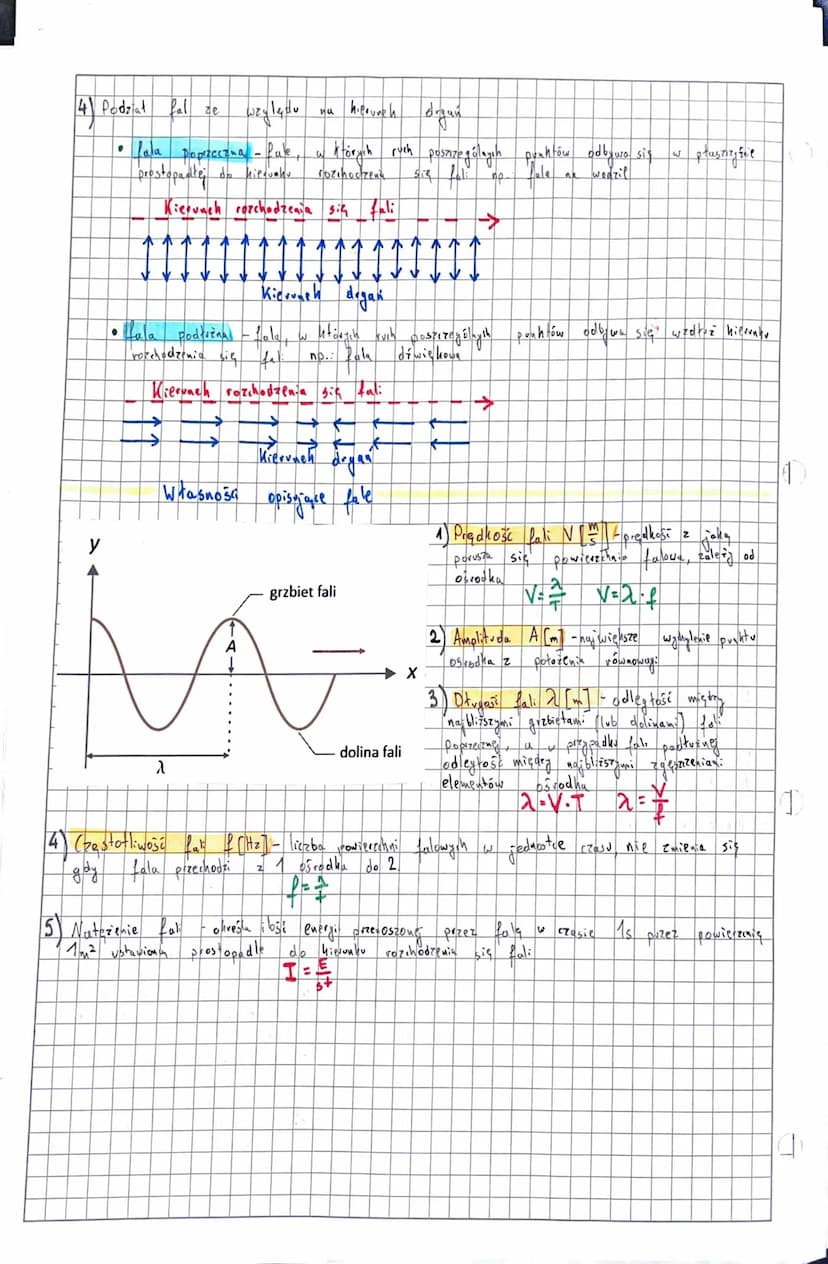 4) Podział fal ze względu na kierunek drgań
• fala poprzeczna - fale, w których ruch poszczególnych punktów odbywa się w płaszczyźnie
prostopadłej do kierunku rozchodzenia się fali np. fale na wodzie
Kierunek rozchodzenia się fali
Kierunek drgań
• fala podłużna - fala, w których ruch poszczególnych punktów odbywa się wzdłuż kierunku
rozchodzenia się fali np.: fala dźwiękowa
Kierunek rozchodzenia się fali
Kierunek drgań
Własności opisujące fale
y
grzbiet fali
A
x
dolina fali
λ
1) Prędkość fali V [m/s] - prędkość z jaką
porusza się powierzchnia falowa, zależy od
ośrodka
V = λ/T V = λ · f
2) Amplituda A [m] - największe wychylenie punktu
ośrodka z położenia równowagi
3) Długość fali λ [m] - odległość między
najbliższymi grzbietami (lub dolinami) fali
poprzecznej, a w przypadku fali podłużnej
odległość między najbliższymi zgęszczeniami
elementów ośrodka
λ = V · T λ = V/f
4) Częstotliwość fali f [Hz] - liczba powierzchni falowych w jednostce czasu, nie zmienia się
gdy fala przechodzi z 1 ośrodka do 2.
5) Natężenie fali - określa ilość energii przenoszonej przez falę w czasie 1s przez powierznię
1m² ustawioną prostopadle do kierunku rozchodzenia się fali
I = E/st